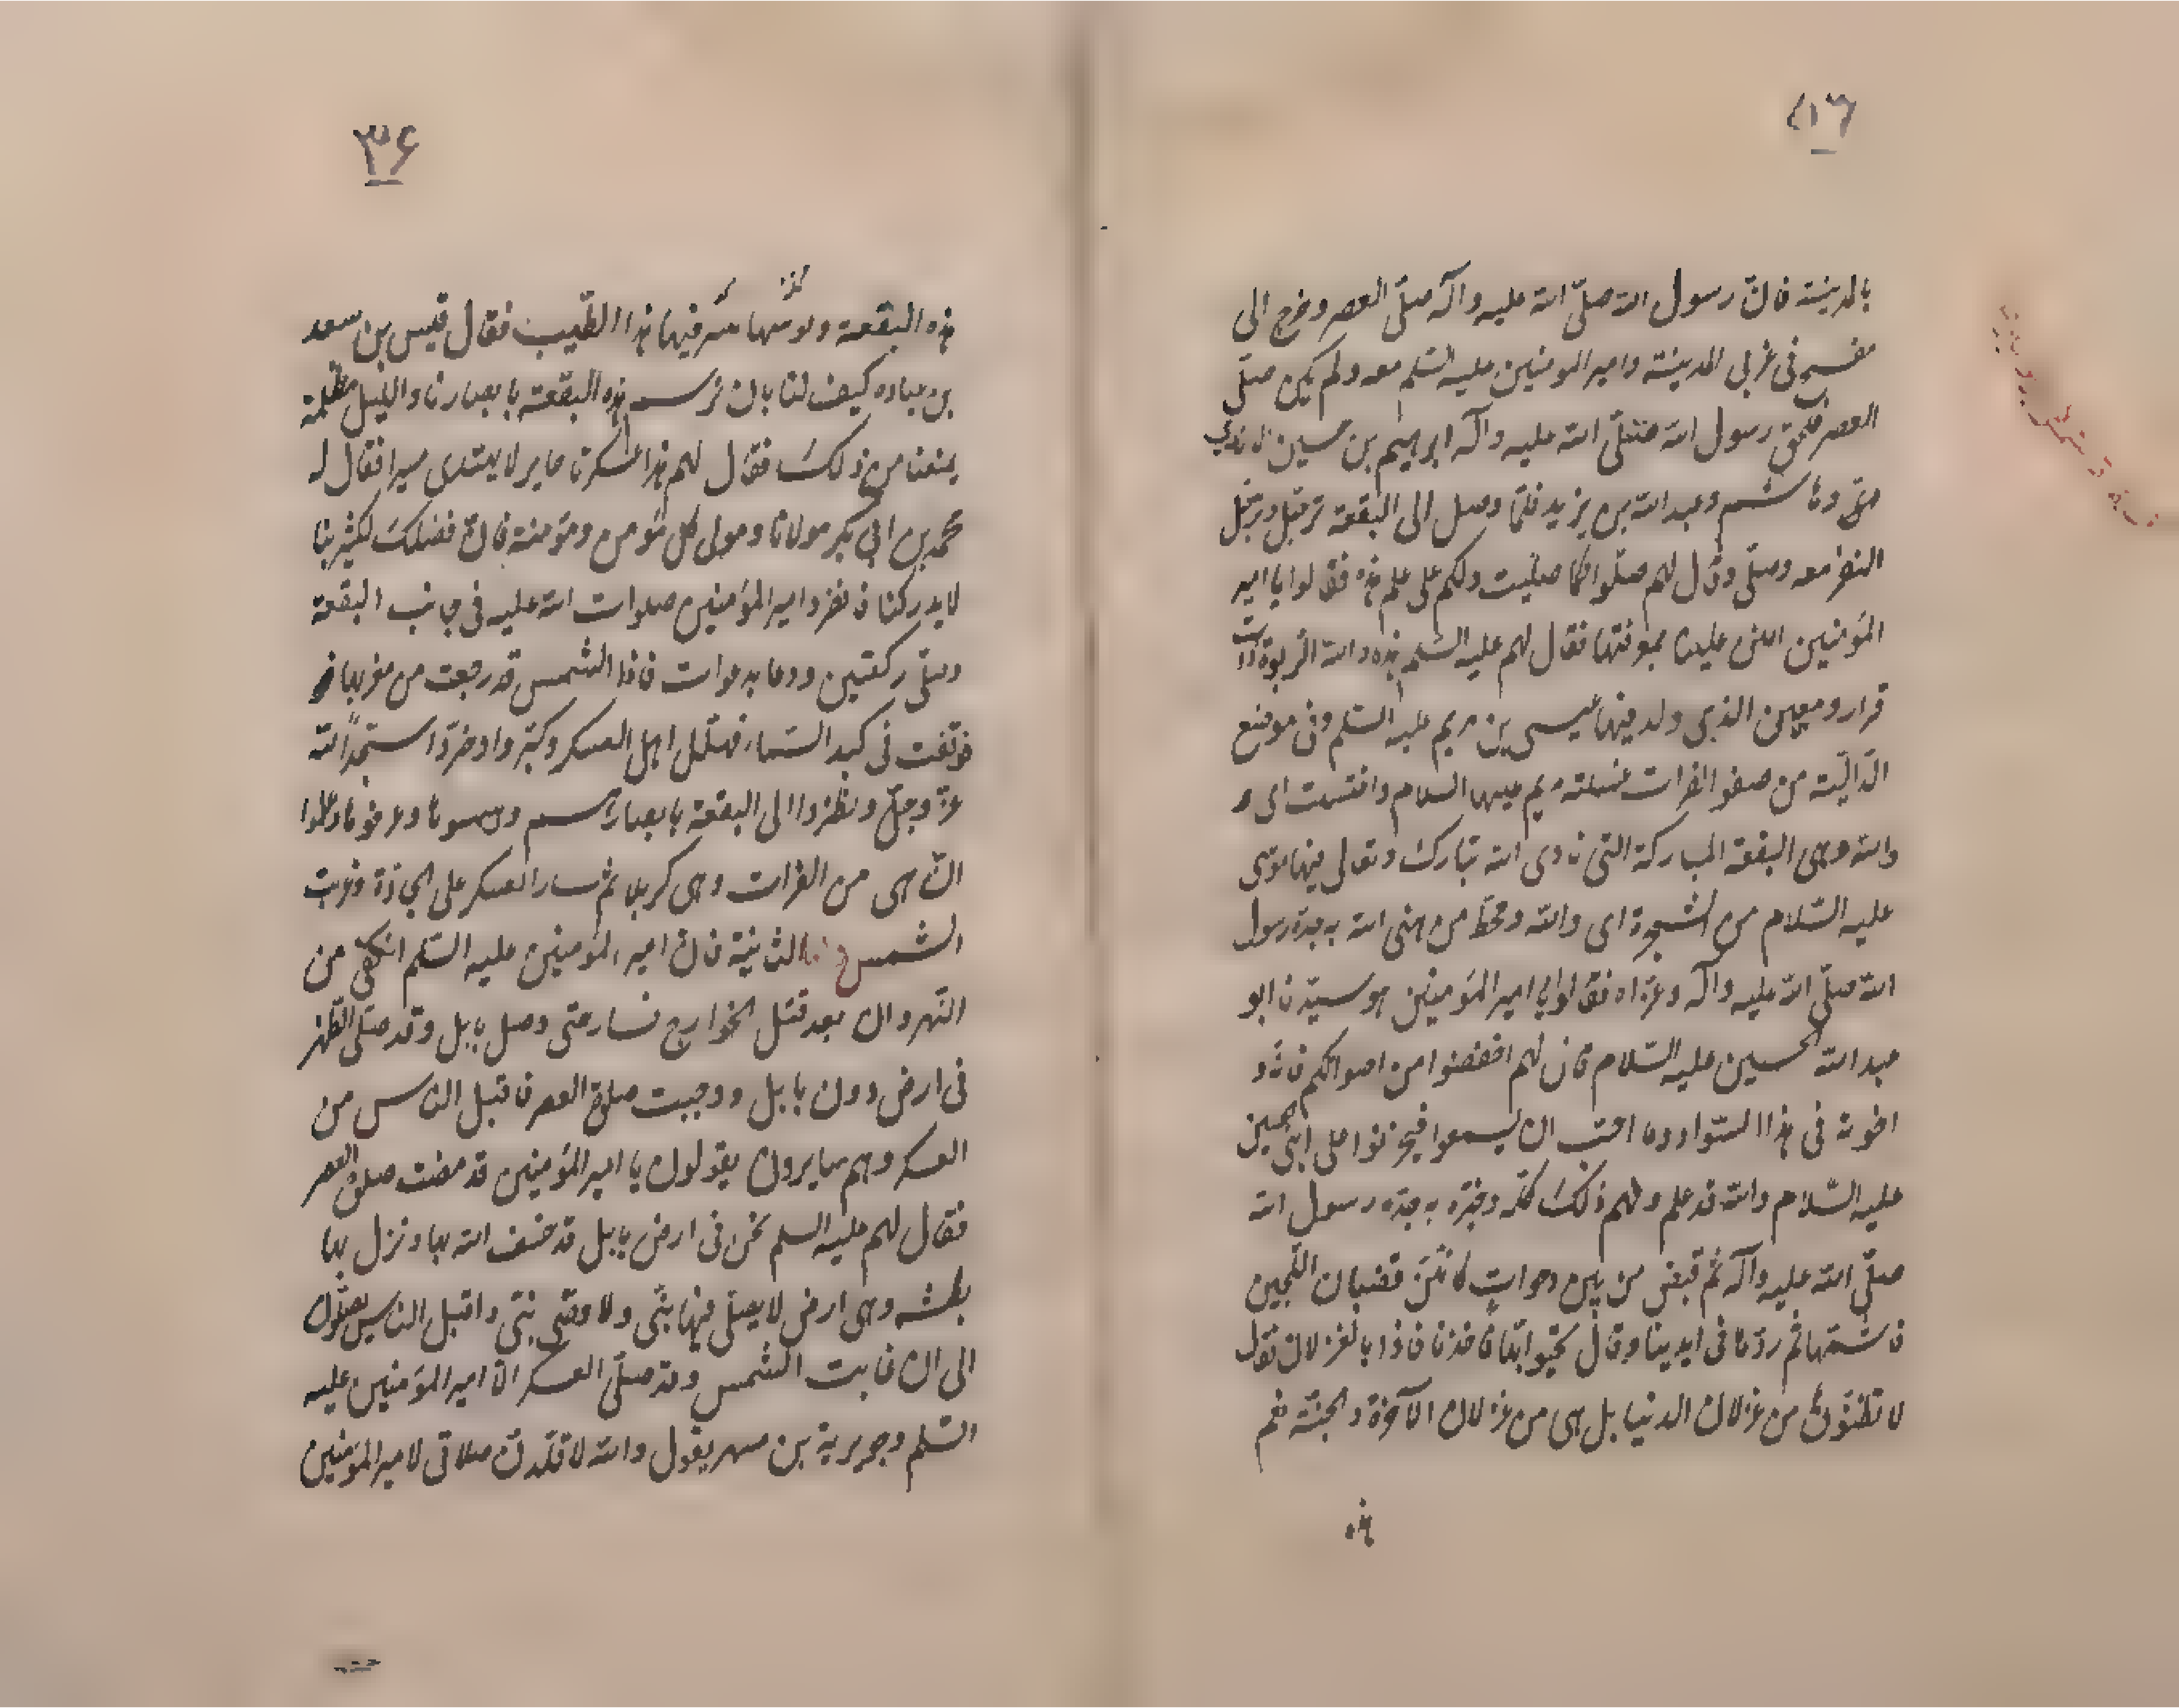 بالمدينة فان رسول الله صلّى الله عليه وآله صلّى العصر وخرج الى
فى غربى المدينة وامير المومنين عليه السّلم معه ولم يكن صلّى
العصر فلحق رسول الله صلّى الله عليه وآله ابرهيم بن حسين
وعبد الله بن يزيد فلمّا وصل الى البقعة ترجّل وترجّل
النفر معه وصلّى وقال لهم صلّوا كما صلّيت ولكم على علم هذه فقالوا يا امير
المؤمنين امنن علينا بمعرفتها فقال لهم عليه السّلم هذه والله الربوة ذات
قرار ومعين الذى ولد فيها عيسى بن مريم عليه السّلم وفى موضع
الدّاليّة من صفو الفرات غسلته مريم عليها السلام واغتسلت اى و
والله وهى البقعة المباركة التى نادى الله تبارك وتعالى فيها موسى
عليه السّلام من الشجرة اى والله ومحطّ من هنى الله به جدّه رسول
الله صلّى الله عليه وآله وعزاه فقالوا يا امير المؤمنين هو سيّدنا ابو
عبد الله الحسين عليه السّلام قال لهم اخفضوا من اصواتكم فانّه و
اخوته فى هذا السّواد وما احبّ ان يسمعوا فيحزنوا على ابنى الحسين
عليه السّلام والله قد علم وفهم ذلك كلّه وخبّره به جدّه رسول الله
صلّى الله عليه وآله ثم قبض من بين دوحات كانهنّ قضبان اللجين
فاشتمّها ثم ردّها فى ايدينا وقال تحيّوا بها فاخذنا فاذا بالغزلان فقال
لا تظنّوها من غزلان الدنيا بل هى من غزلان الآخرة والجنّة
٣۶
هذه البقعة فيها هذا الطّيب فقال قيس بن سعد
بن عباده كيف لنا بان نرى هذه البقعة بابصارنا والليل مظلمة
يمنعنا من ذلك فقال لهم هذا عسكرنا حاير لا يهتدى مسيرا فقال له
محمد بن ابى بكر مولانا ومولى كل مؤمن ومؤمنة فانّ فضلك لكثير بنا
لا يدركنا فانفرد امير المؤمنين صلوات الله عليه فى جانب البقعة
وصلّى ركعتين ودعا بدعوات فاذا الشمس قد رجعت من مغربها
فوقفت فى كبد السّماء فهلّل اهل العسكر وكبّروا وخرّوا سجّداً لله
عزّ وجلّ ونظروا الى البقعة بابصارهم وعرفوها وعلموا
انّ هى من الفرات وهى كربلا ثم سار العسكر على الجادّة وغربت
الشمس الثانية فان امير المؤمنين عليه السّلم انكفى من
النّهروان بعد قتل الخوارج فسار حتى وصل بابل وقد صلّى الظّهر
فى ارض دون بابل ووجبت صلوة العصر فاقبل الناس من
العسكر وهم سايرون يقولون يا امير المؤمنين قد مضت صلوة العصر
فقال لهم عليه السلم نحن فى ارض بابل قد خسف الله بها ونزل بها
بطشه وهى ارض لا يصلّى فيها نبىّ ولا وصىّ نبىّ واقبل الناس يصلّون
الى ان غابت الشمس وقد صلّى العسكر الّا امير المؤمنين عليه
السّلم وجويرية بن مسهر يقول والله لا قلّدنّ صلاتى لامير المؤمنين